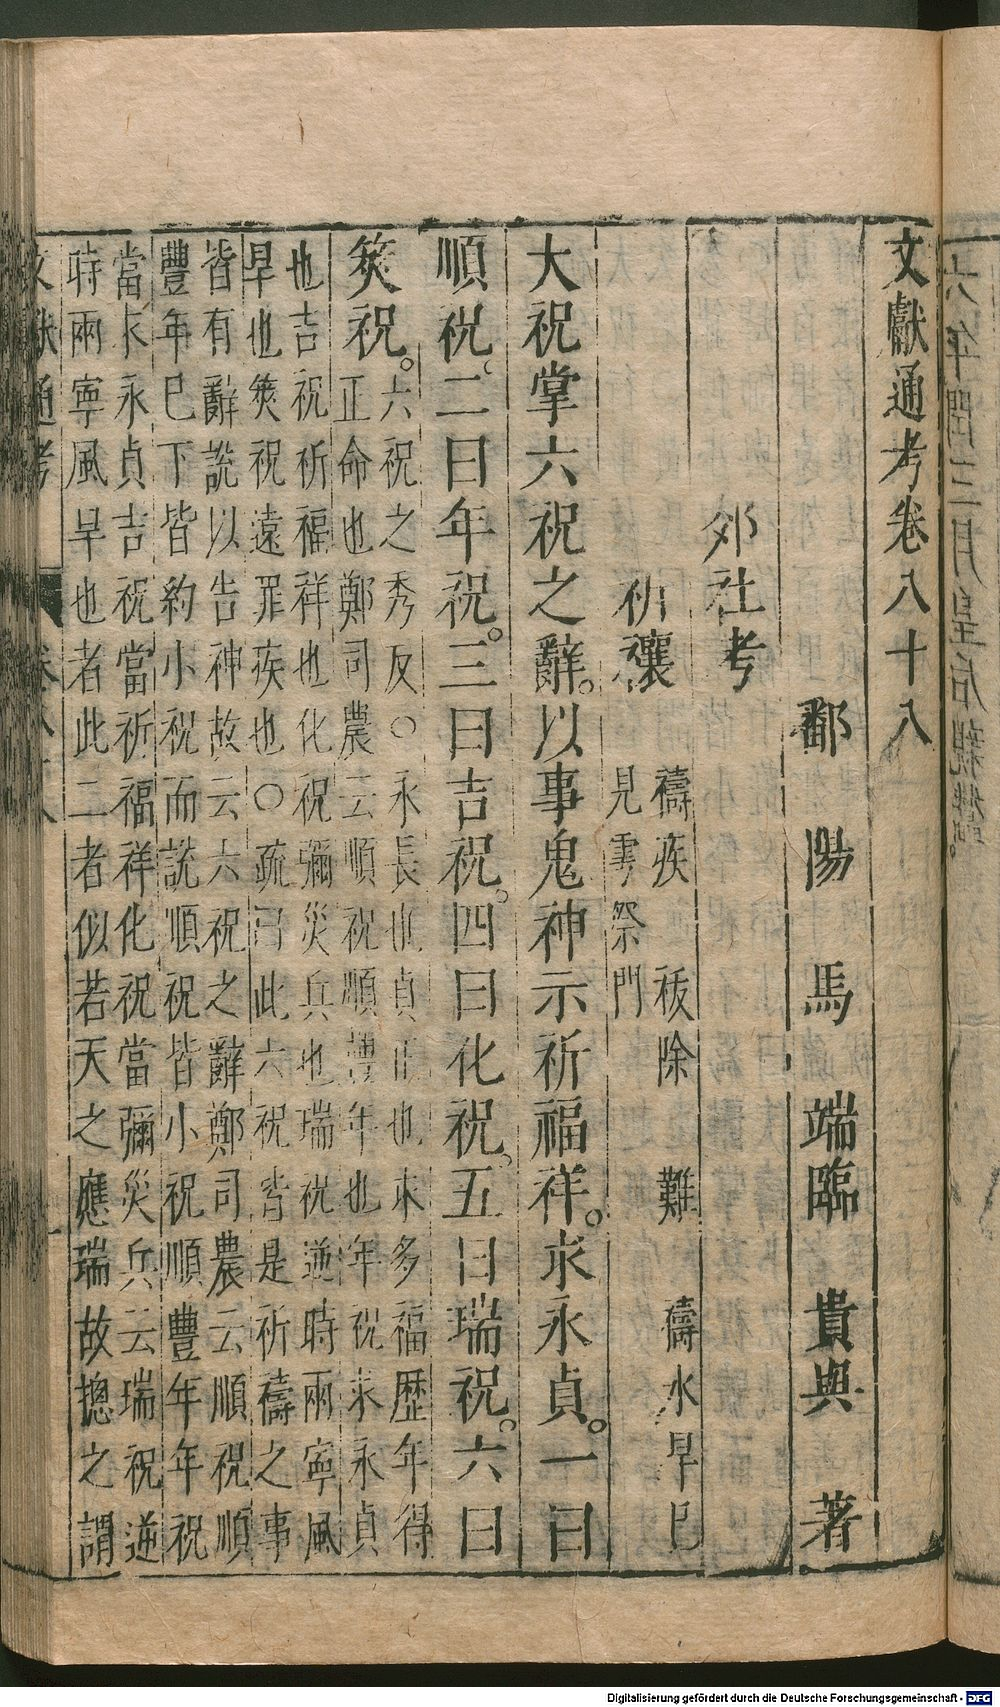 文獻通考卷八十八
鄱陽馬端臨貴與著
郊社考
祈禳
禱疾 祓除 難 禱水旱已
見雩祭門
大祝掌六祝之辭。以事鬼神示祈福祥。求永貞。一曰
順祝、二曰年祝。三曰吉祝。四曰化祝。五曰瑞祝。六曰
筴祝。
六祝之秀反〇永長也貞正也求多福歷年得
正命也鄭司農云順祝順豐年也年祝求永貞
也吉祝祈福祥也化祝彌災兵也瑞祝逆時雨寧風
旱也筴祝遠罪疾也〇疏曰此六祝皆是祈禱之事
皆有辭說以告神故云六祝之辭鄭司農云順祝順
豐年巳下皆約小祝而說順祝皆小祝順豐年年祝
當求永貞吉祝當祈福祥化祝當彌災兵云瑞祝逆
時雨寧風旱也者此二者似若天之應瑞故摠之謂
文獻通考 卷八十八 一
Digitalisierung gefördert durch die Deutsche Forschungsgemeinschaft - DFG